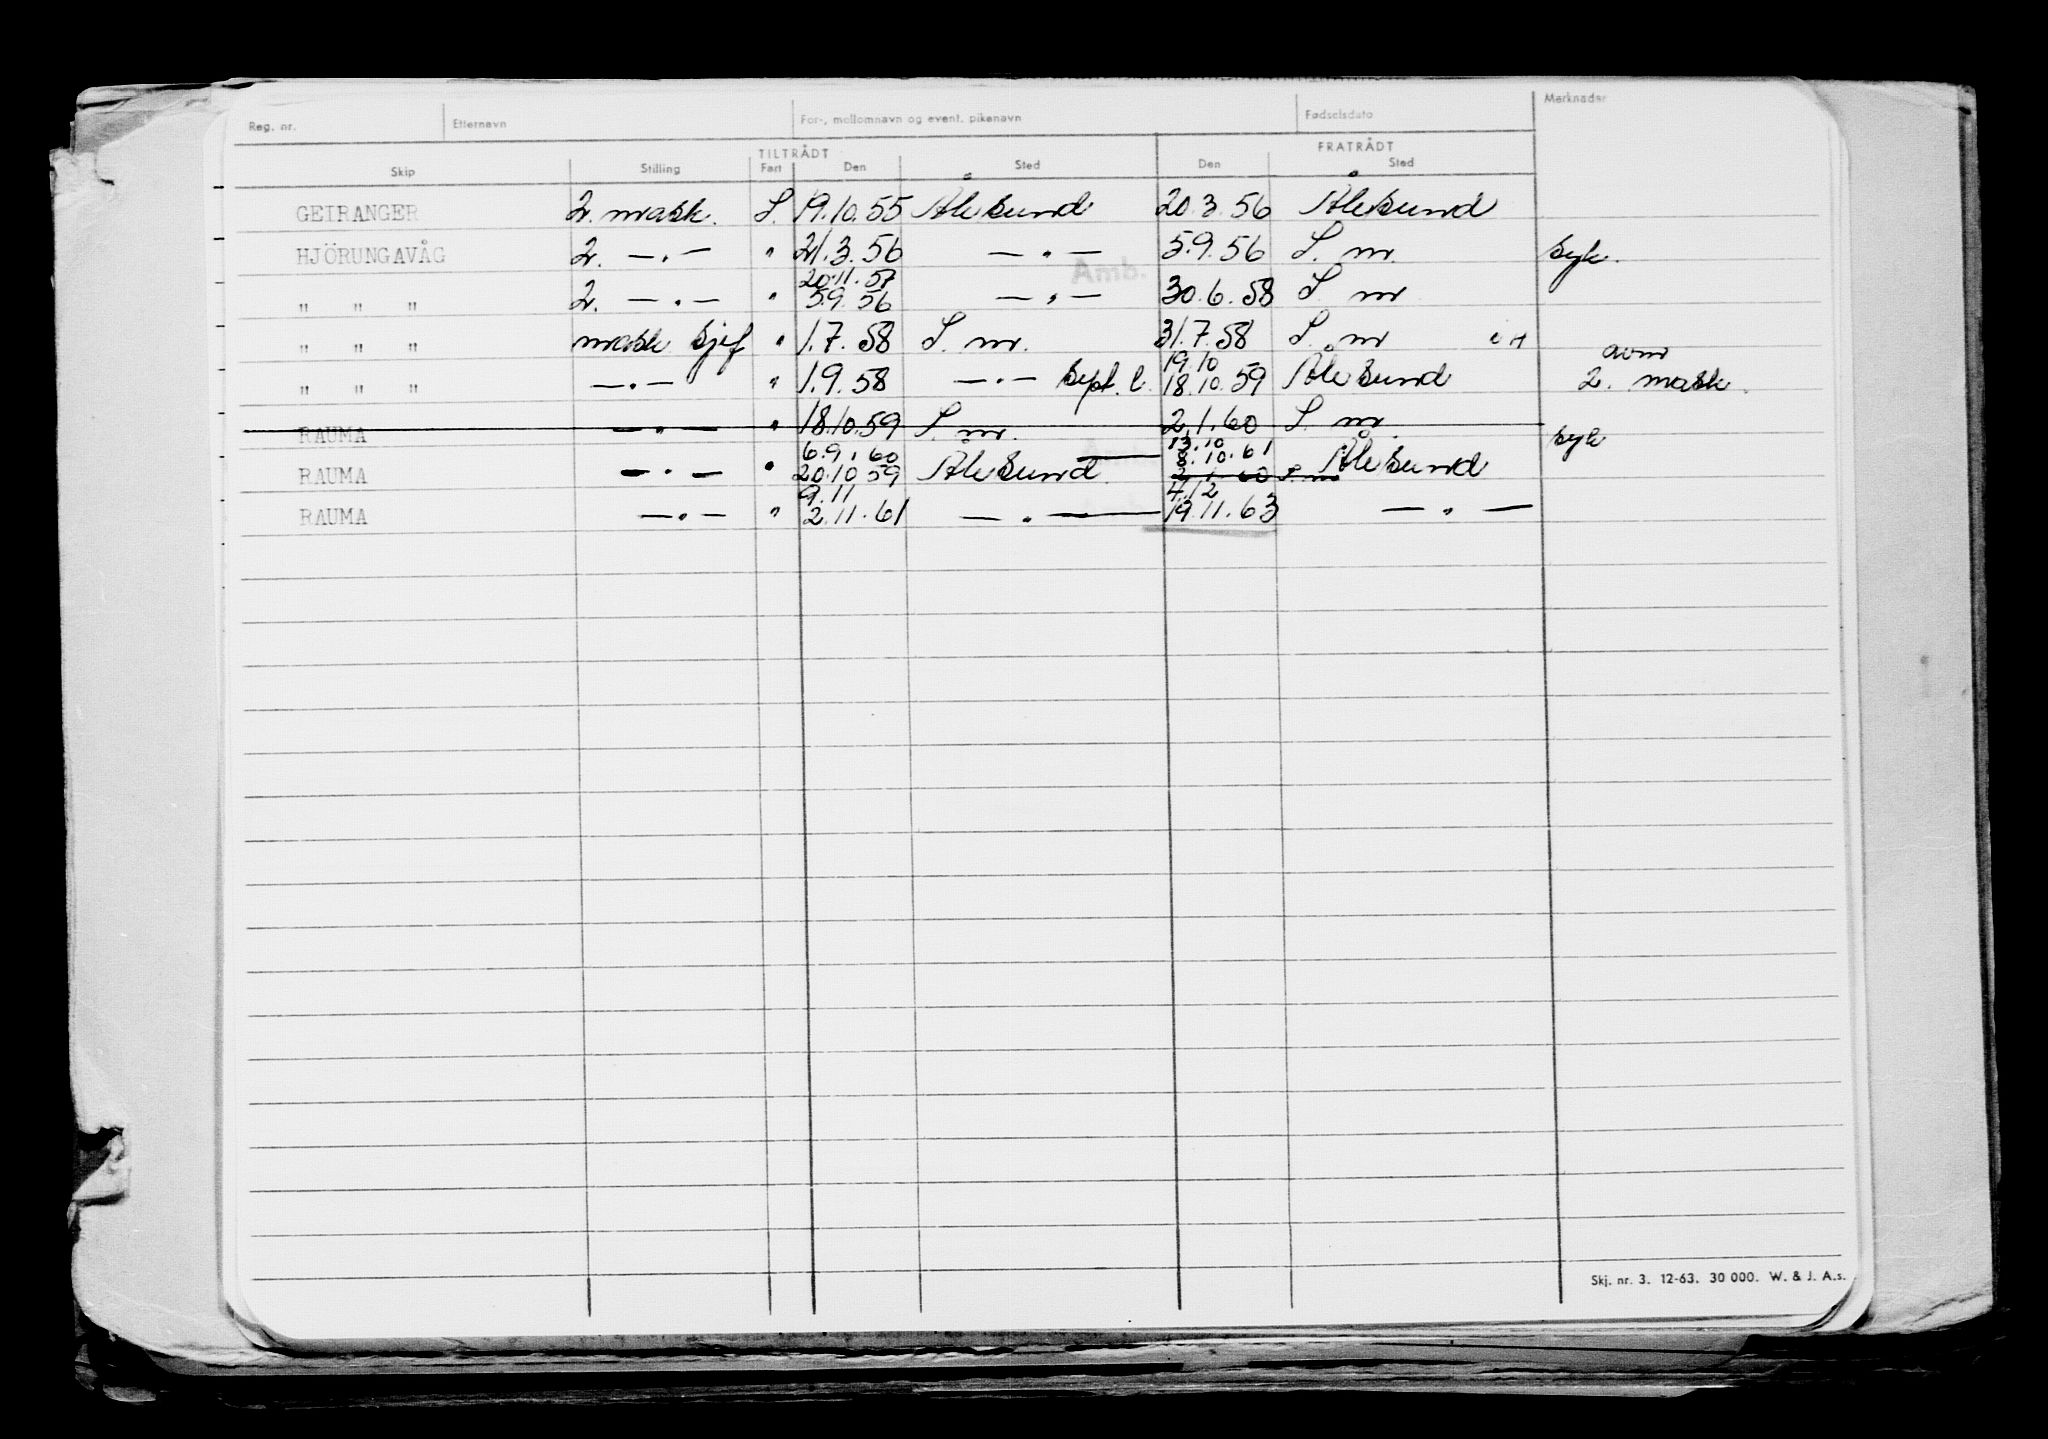 Reg. nr. Etternavn For-, mellomnavn og event. pikenavn Fødselsdato Merknader
TILTRÅDT FRATRÅDT
Skip Stilling Fart Den Sted Den Sted
GEIRANGER 2. mask. S. 19.10.55 Ålesund 20.3.56 Ålesund
HJÖRUNGAVÅG 2. —„— " 21.3.56 —„— 5.9.56 S. m. syk.
Amb.
20.11.57
" " " 2. —„— " 5.9.56 —„— 30.6.58 S. m.
" " " mask sjef " 1.7.58 S. m. 31.7.58 S. m
19.10 avm
" " " —„— " 1.9.58 —„— Sept. l. 18.10.59 Ålesund 2. mask.
RAUMA —„— " 18.10.59 S. m. 2.1.60 S. m. syk
6.9.60 13.10
8.10.61
RAUMA —„— " 20.10 59 Ålesund 2 1 60 S. m Ålesund
9.11 4.12
RAUMA —„— " 2.11.61 —„— 19.11.63 —„—
Skj. nr. 3. 12-63. 30 000. W. & J. A.s.